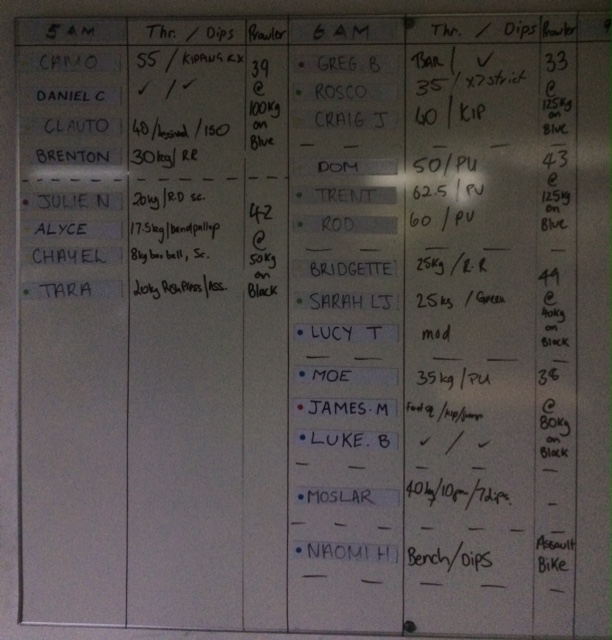 5 AM Thr. / Dips Prowler
CAMO 55 / KIPPING RX
DANIEL C ✓ / ✓
CLAUTO 40/ /150
BRENTON 30kg/RR
39
@
100kg
on
Blue
JULIE N 20kg/R.D sc.
ALYCE 17.5kg/band pullup
CHAYEL 8kg bar bell, Sc.
TARA 20kg Push Press/Ass.
42
@
50kg
on
Black
6 AM Thr. / Dips Prowler
GREG. B BAR / ✓
ROSCO 35 / x7 strict
CRAIG J 40 / KIP
33
@
125kg
on
Blue
DOM 50/PU
TRENT 62.5 / PU
ROD 60 / PU
43
@
125kg
on
Blue
BRIDGETTE 25kg / R.R
SARAH LJ 25kg / Green
LUCY T mod
49
@
40kg
on
Black
MOE 35kg/PU
JAMES. M /kip/
LUKE. B ✓ / ✓
38
@
80kg
on
Black
MOSLAR 40kg/10pm/7dips. -
NAOMI H Bench/DIPS
Assault
BIKE